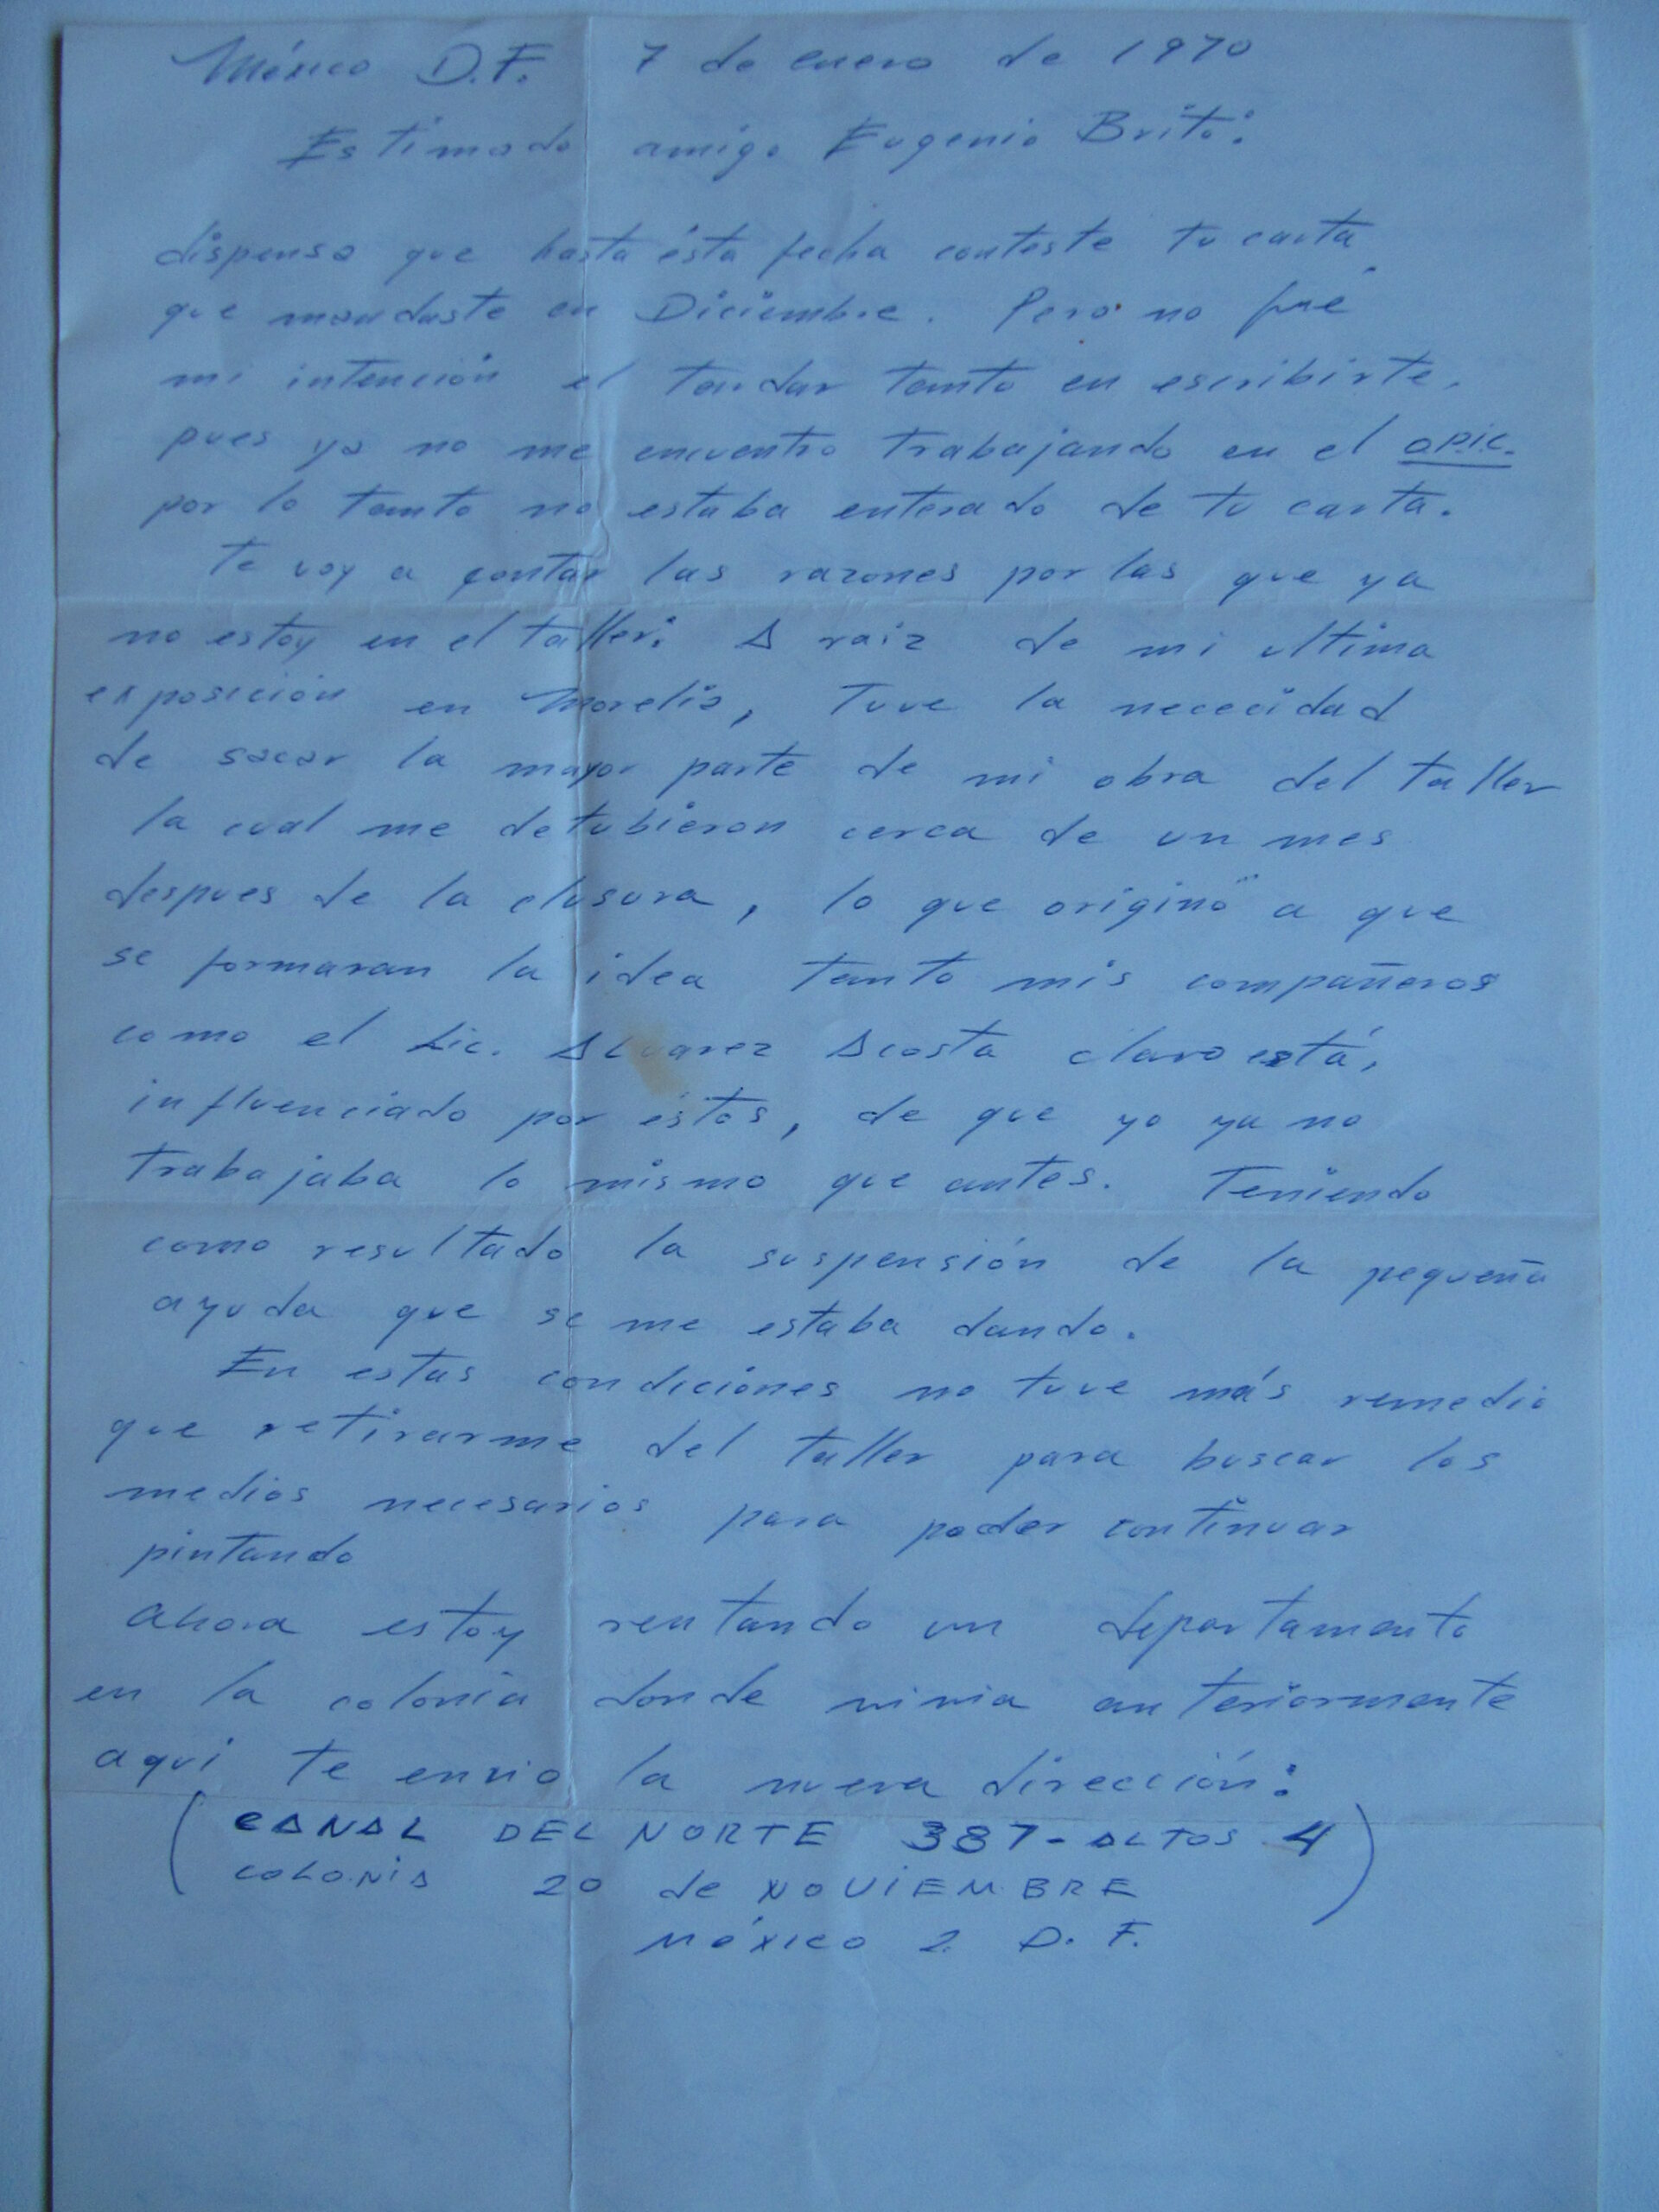 México D.F. 7 de enero de 1970
Estimado amigo Eugenio Brito:
dispensa que hasta ésta fecha conteste tu carta
que mandaste en Diciembre. Pero no fué
mi intención el tardar tanto en escribirte,
pues ya no me encuentro trabajando en el OPIC.
por lo tanto no estaba enterado de tu carta.
Te voy a contar las razones por las que ya
no estoy en el taller: A raiz de mi ultima
exposición en Morelia, tuve la nececidad
de sacar la mayor parte de mi obra del taller
la cual me detubieron cerca de un mes
despues de la clusura, lo que originó a que
se formaran la idea tanto mis compañeros
como el Lic. Alvarez Acosta claro está,
influenciado por éstos, de que yo ya no
trabajaba lo mismo que antes. Teniendo
como resultado la suspensión de la pequeña
ayuda que se me estaba dando.
En estas condiciones no tuve más remedio
que retirarme del taller para buscar los
medios necesarios para poder continuar
pintando
Ahora estoy rentando un departamento
en la colonia donde vivia anteriormente
aqui te envio la nueva dirección:
(CANAL DEL NORTE 387-ALTOS 4
COLONIA 20 de NOVIEMBRE)
México 2. D. F.